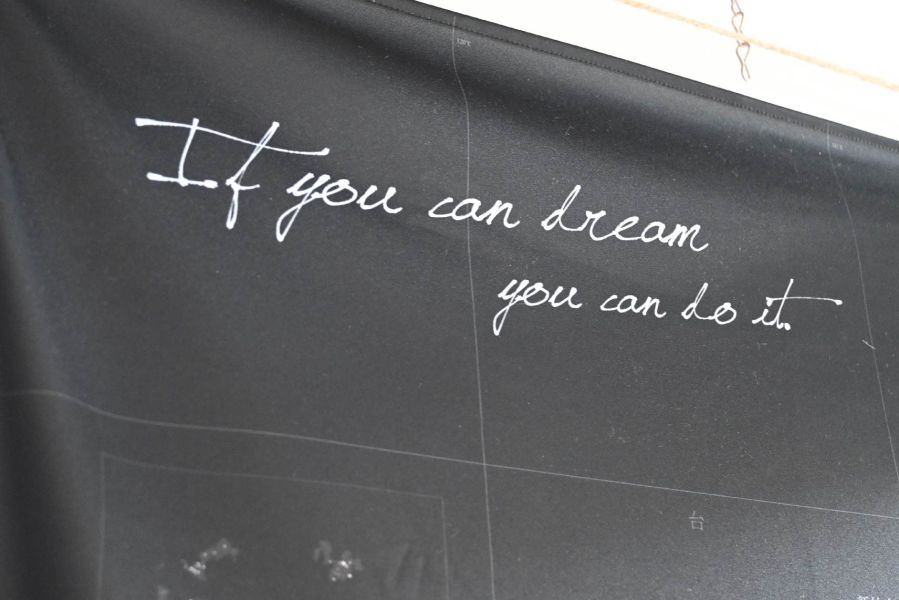 If you can dream
you can do it.
台